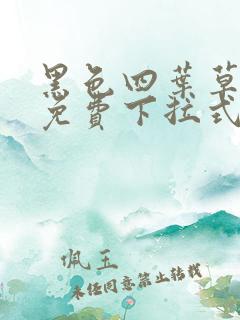 黑色四葉草
免費下拉式
佩玉
未经同意禁止转载